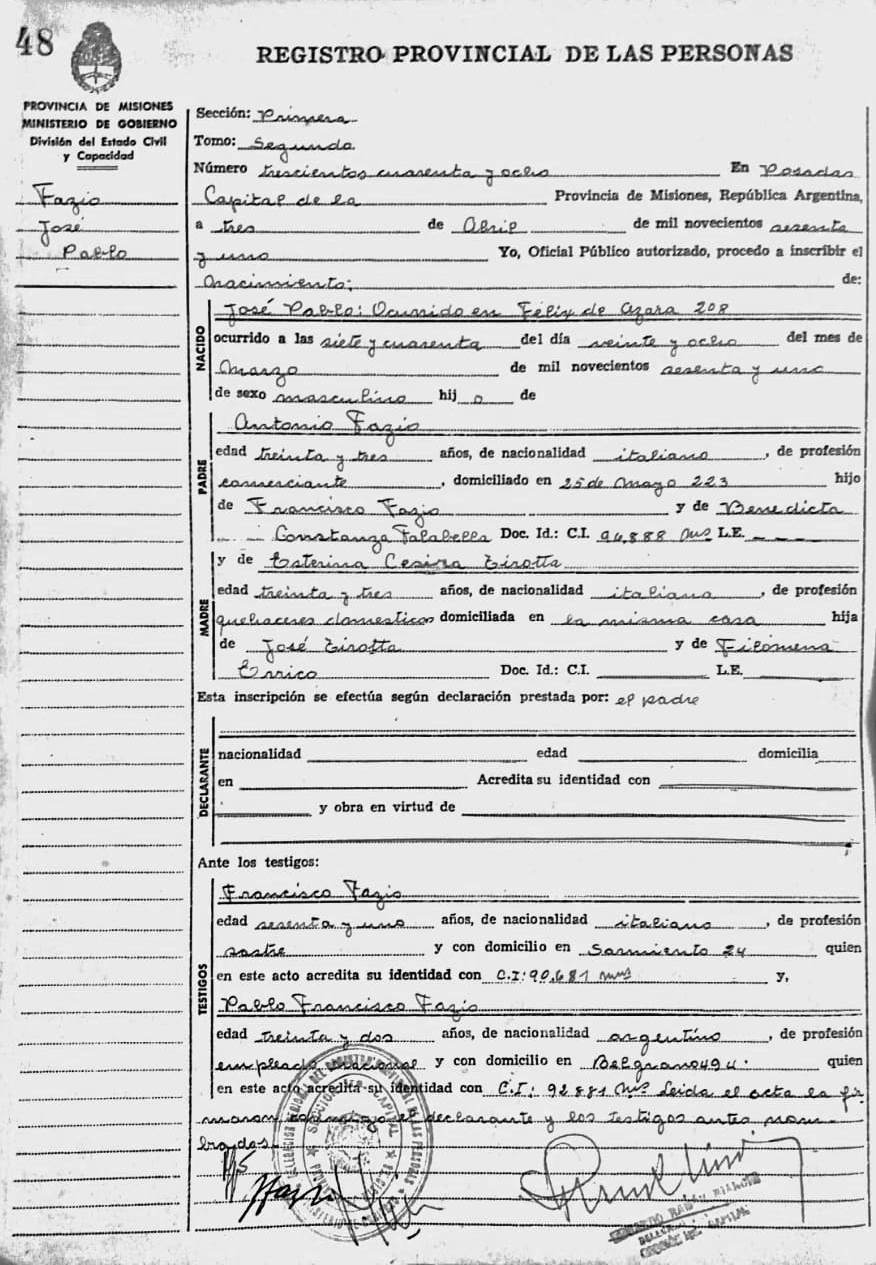 48
REGISTRO PROVINCIAL DE LAS PERSONAS
PROVINCIA DE MISIONES
MINISTERIO DE GOBIERNO
División del Estado Civil
y Capacidad
Fazio
José
Pablo
Sección: Primera
Tomo: Segundo
Número trescientos cuarenta y ocho En Posadas
Capital de la Provincia de Misiones, República Argentina,
a tres de Abril de mil novecientos sesenta
y uno Yo, Oficial Público autorizado, procedo a inscribir el
nacimiento: de:
NACIDO
José Pablo: Ocurrido en Félix de Azara 208
ocurrido a las siete y cuarenta del día veinte y ocho del mes de
Marzo de mil novecientos sesenta y uno
de sexo masculino hij o de
PADRE
Antonio Fazio
edad treinta y tres años, de nacionalidad italiano, de profesión
comerciante, domiciliado en 25 de Mayo 223 hijo
de Francisco Fazio y de Benedicta
Constanza Falabella Doc. Id.: C.I. 94.888 Mns L.E.
MADRE
y de Esterina Cesira Tirotta
edad treinta y tres años, de nacionalidad italiana, de profesión
quehaceres domesticos domiciliada en la misma casa hija
de José Tirotta y de Filomena
Errico Doc. Id.: C.I. L.E.
Esta inscripción se efectúa según declaración prestada por: el padre
DECLARANTE
nacionalidad edad domicilia
en Acredita su identidad con
y obra en virtud de
Ante los testigos:
TESTIGOS
Francisco Fazio
edad sesenta y uno años, de nacionalidad italiano, de profesión
sastre y con domicilio en Sarmiento 24 quien
en este acto acredita su identidad con C.I: 90.681 Mns y,
Pablo Francisco Fazio
edad treinta y dos años, de nacionalidad argentino, de profesión
empleado nacional y con domicilio en Belgrano 494. quien
en este acto acredita su identidad con C.I: 92881 Mns Leida el acta la fir
maron conmigo el declarante y los testigos antes nom-
brados.